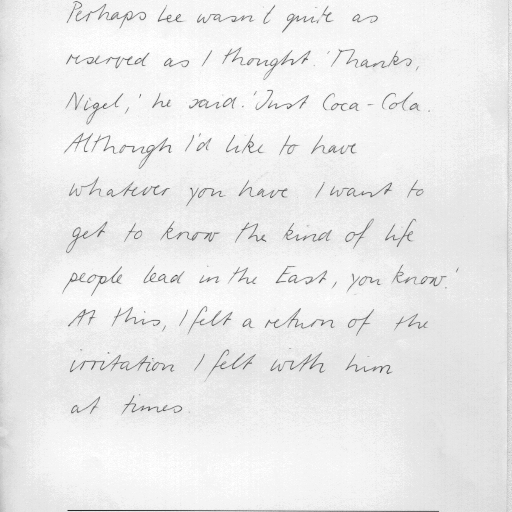 Perhaps Lee wasn't quite as
reserved as I thought. 'Thanks,
Nigel,' he said. 'Just Coca-Cola.
Although I'd like to have
whatever you have I want to
get to know the kind of life
people lead in the East, you know.'
At this, I felt a return of the
irritation I felt with him
at times.